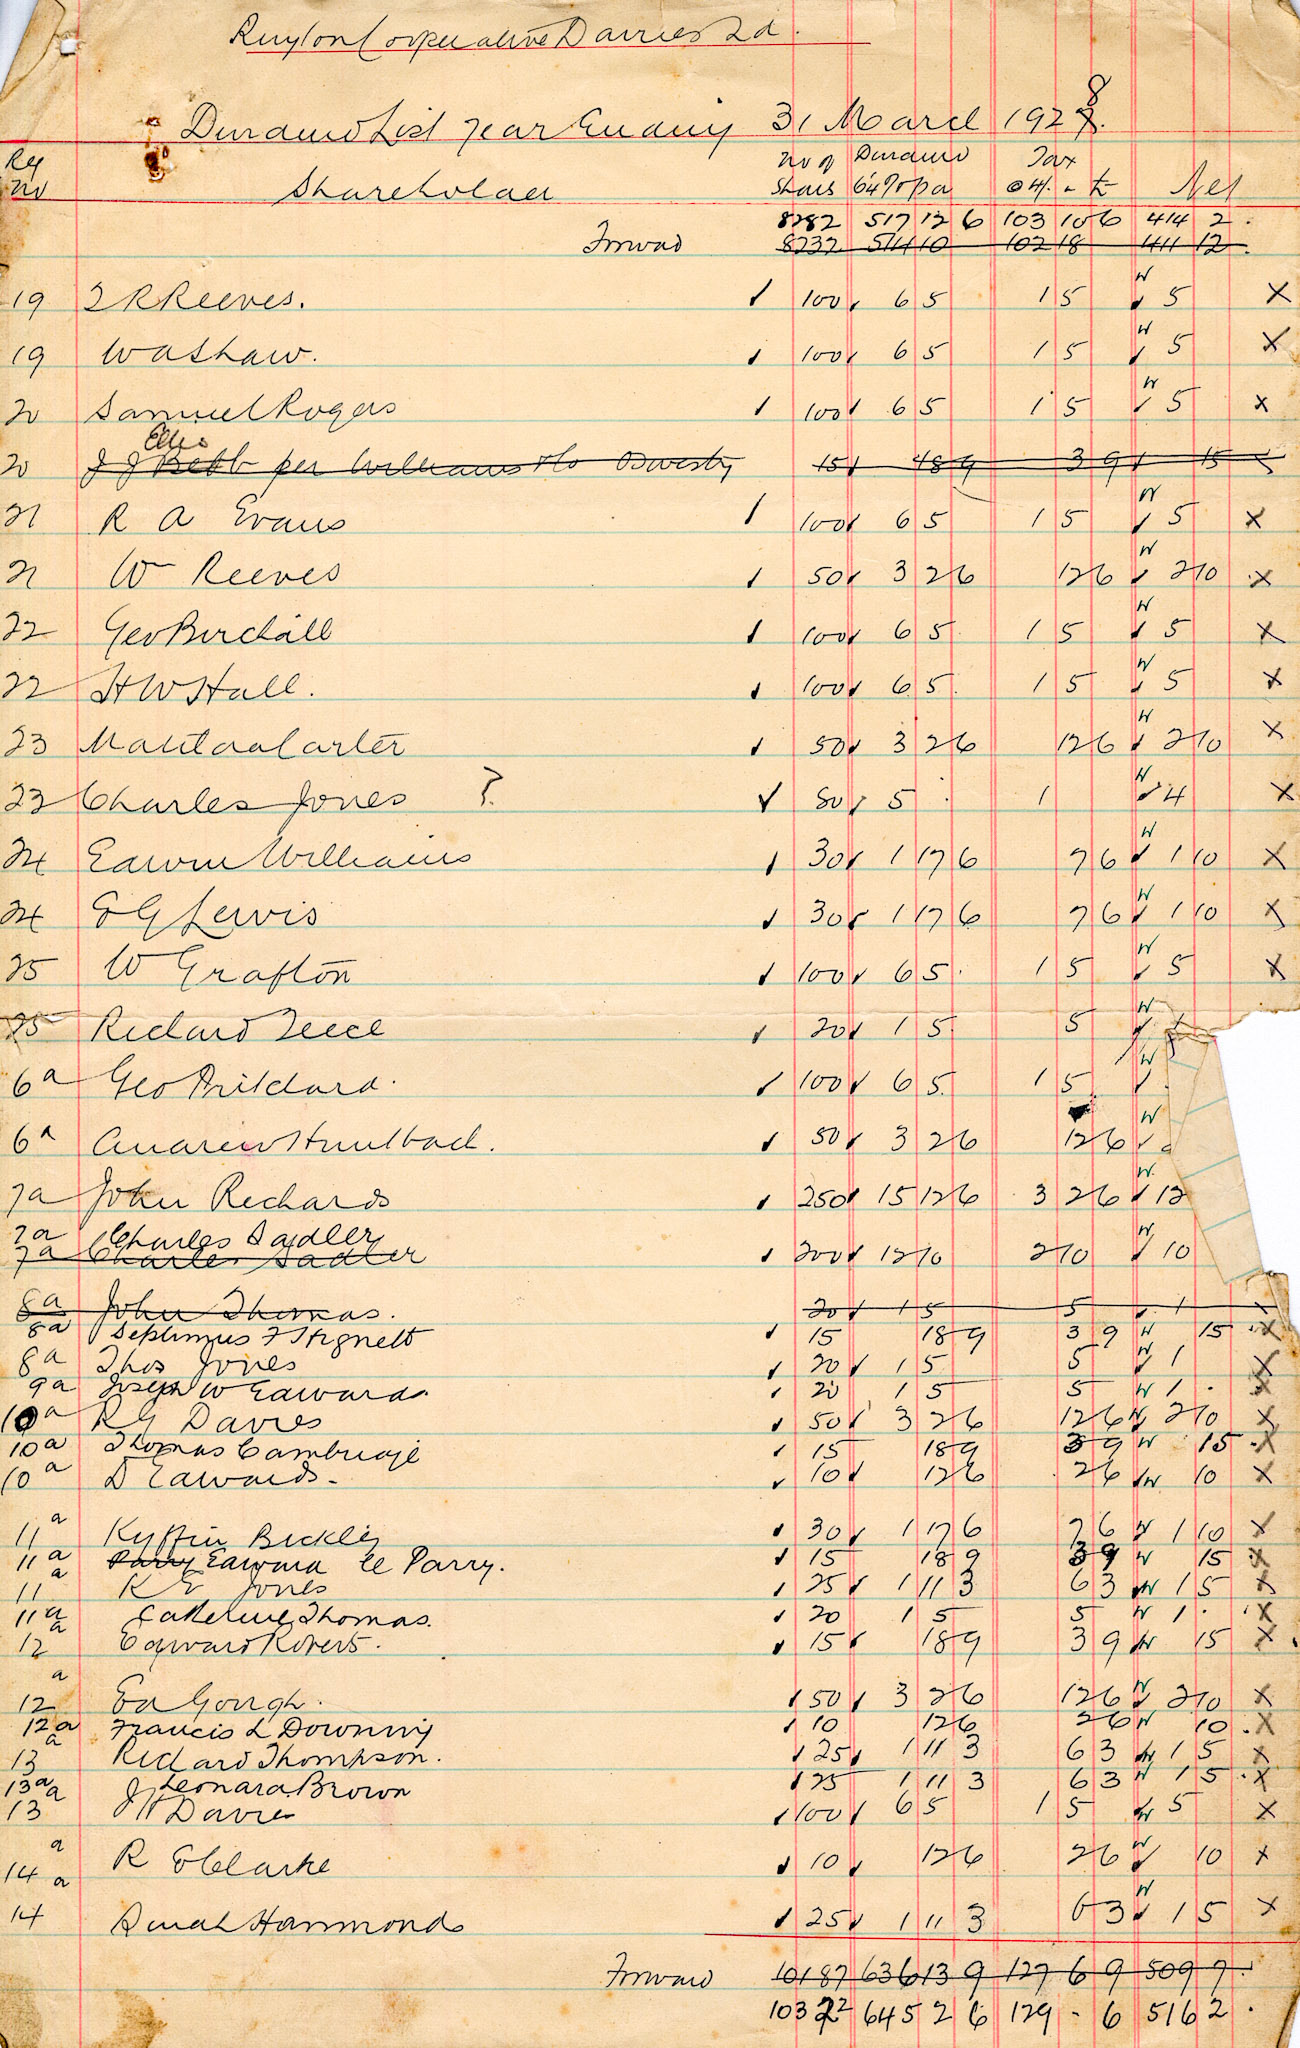 Ruyton Cooperative Dairies Ld.
Dividend List Year Ending 31 March 1927 8.
Reg no Shareholder no of Shares Dividend 6¼% pa Tax @ 4/- in £ Net
8282 517 12 6 103 10 6 414 2 .
Forward 8232 514 10 102 18 411 12 .
19 R Reeves. ✓ 100 ✓ 6 5 1 5 W ✓ 5 X
19 W A Shaw. ✓ 100 ✓ 6 5 1 5 W ✓ 5 X
20 Samuel Rogers ✓ 100 ✓ 6 5 1 5 W ✓ 5 X
Ellis
20 J J Bebb per Williams & Co Oswestry 15 ✓ 18 9 3 9 ✓ 15
21 R A Evans ✓ 100 ✓ 6 5 1 5 W ✓ 5 X
21 Wm Reeves ✓ 50 ✓ 3 2 6 12 6 W ✓ 2 10 X
22 Geo Birchall ✓ 100 ✓ 6 5 1 5 W ✓ 5 X
22 H W Hall. ✓ 100 ✓ 6 5 1 5 W ✓ 5 X
23 Matilda Carter ✓ 50 ✓ 3 2 6 12 6 W ✓ 2 10 X
23 Charles Jones ? ✓ 80 ✓ 5 . 1 W ✓ 4 X
24 Edwin Williams ✓ 30 ✓ 1 17 6 7 6 W ✓ 1 10 X
24 E G Lewis ✓ 30 ✓ 1 17 6 7 6 W ✓ 1 10 X
25 W Grafton ✓ 100 ✓ 6 5 . 1 5 W ✓ 5 X
25 Richard Teece ✓ 20 ✓ 1 5 5 W ✓ 1
6a Geo Pritchard. ✓ 100 ✓ 6 5 1 5 W ✓
6a Andrew Huntbach. ✓ 50 ✓ 3 2 6 12 6 W ✓
7a John Richards ✓ 250 ✓ 15 12 6 3 2 6 W ✓ 12
7a Charles Sadler
7a Charles Sadler ✓ 200 ✓ 12 10 2 10 W ✓ 10
8a John Thomas. 20 ✓ 1 5 5 ✓ 1 X
8a Septimus F Hignett ✓ 15 18 9 3 9 W 15 X
8a Thos Jones ✓ 20 ✓ 1 5 5 W ✓ 1 X
9a Joseph W Edwards. ✓ 20 1 5 5 W 1 . X
10a R G Davies ✓ 50 ✓ 3 2 6 12 6 W 2 10 X
10a Thomas Cambridge ✓ 15 18 9 3 9 W 15 X
10a D Edwards. ✓ 10 ✓ 12 6 2 6 ✓ W 10 X
11a Kyffin Bickley ✓ 30 ✓ 1 17 6 7 6 W 1 10 X
11a Parry Edward Parry. ✓ 15 18 9 3 9 W 15 X
11a R E Jones ✓ 25 ✓ 1 11 3 6 3 ✓ W 1 5 X
11a Catherine Thomas. ✓ 20 1 5 5 W 1 . X
12a Edward Roberts. ✓ 15 ✓ 18 9 3 9 ✓ W 15 X
12a Ed Gough. ✓ 50 ✓ 3 2 6 12 6 W ✓ 2 10 X
12a Francis L Downing ✓ 10 12 6 2 6 W 10 . X
13a Richard Thompson. ✓ 25 ✓ 1 11 3 6 3 ✓ W 1 5 X
13a Leonard Brown ✓ 25 1 11 3 6 3 W 1 5 . X
13a J H Davies ✓ 100 ✓ 6 5 1 5 ✓ W 5 X
14a R E Clarke ✓ 10 ✓ 12 6 2 6 W ✓ 10 X
14a Sarah Hammonds ✓ 25 ✓ 1 11 3 6 3 W ✓ 1 5 X
Forward 10187 636 13 9 127 6 9 509 7 .
10322 645 2 6 129 - 6 516 2 .